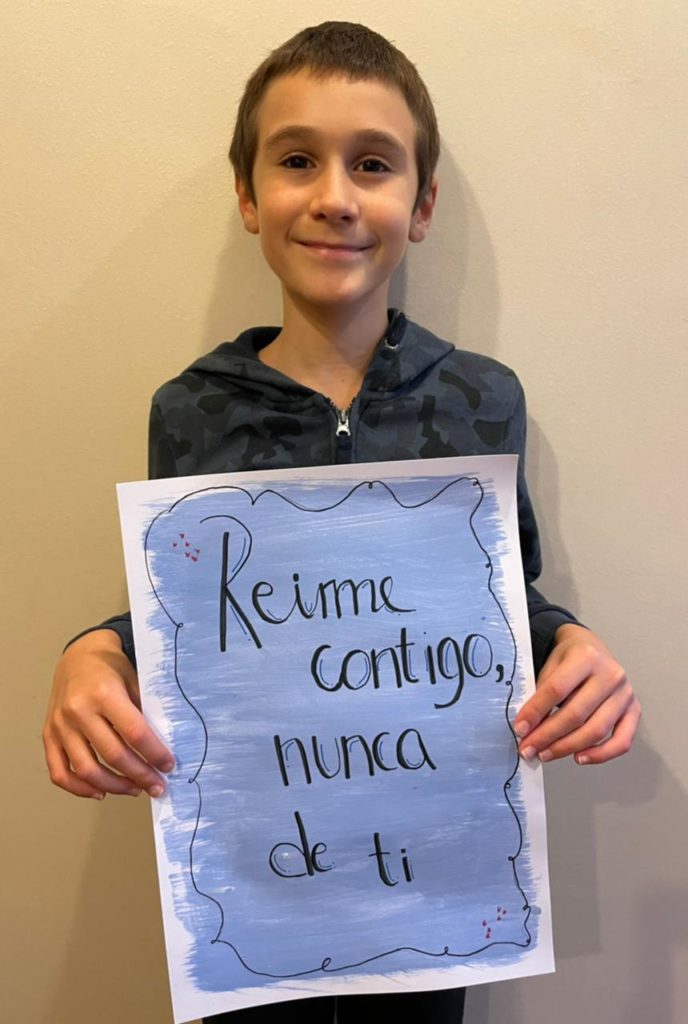 Reirme
contigo,
nunca
de ti